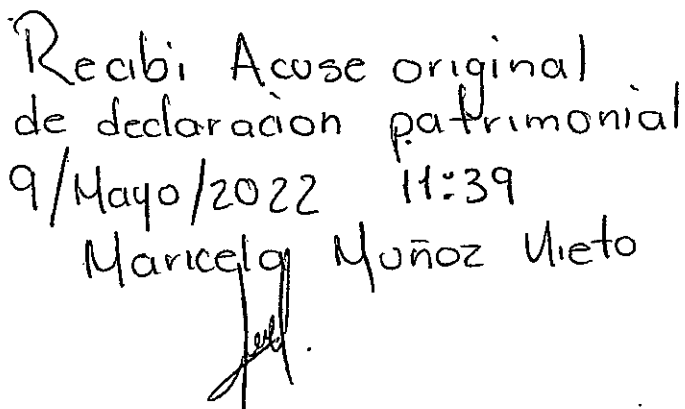 Recibi Acuse original
de declaracion patrimonial
9/Mayo/2022 11:39
Maricela Muñoz Nieto